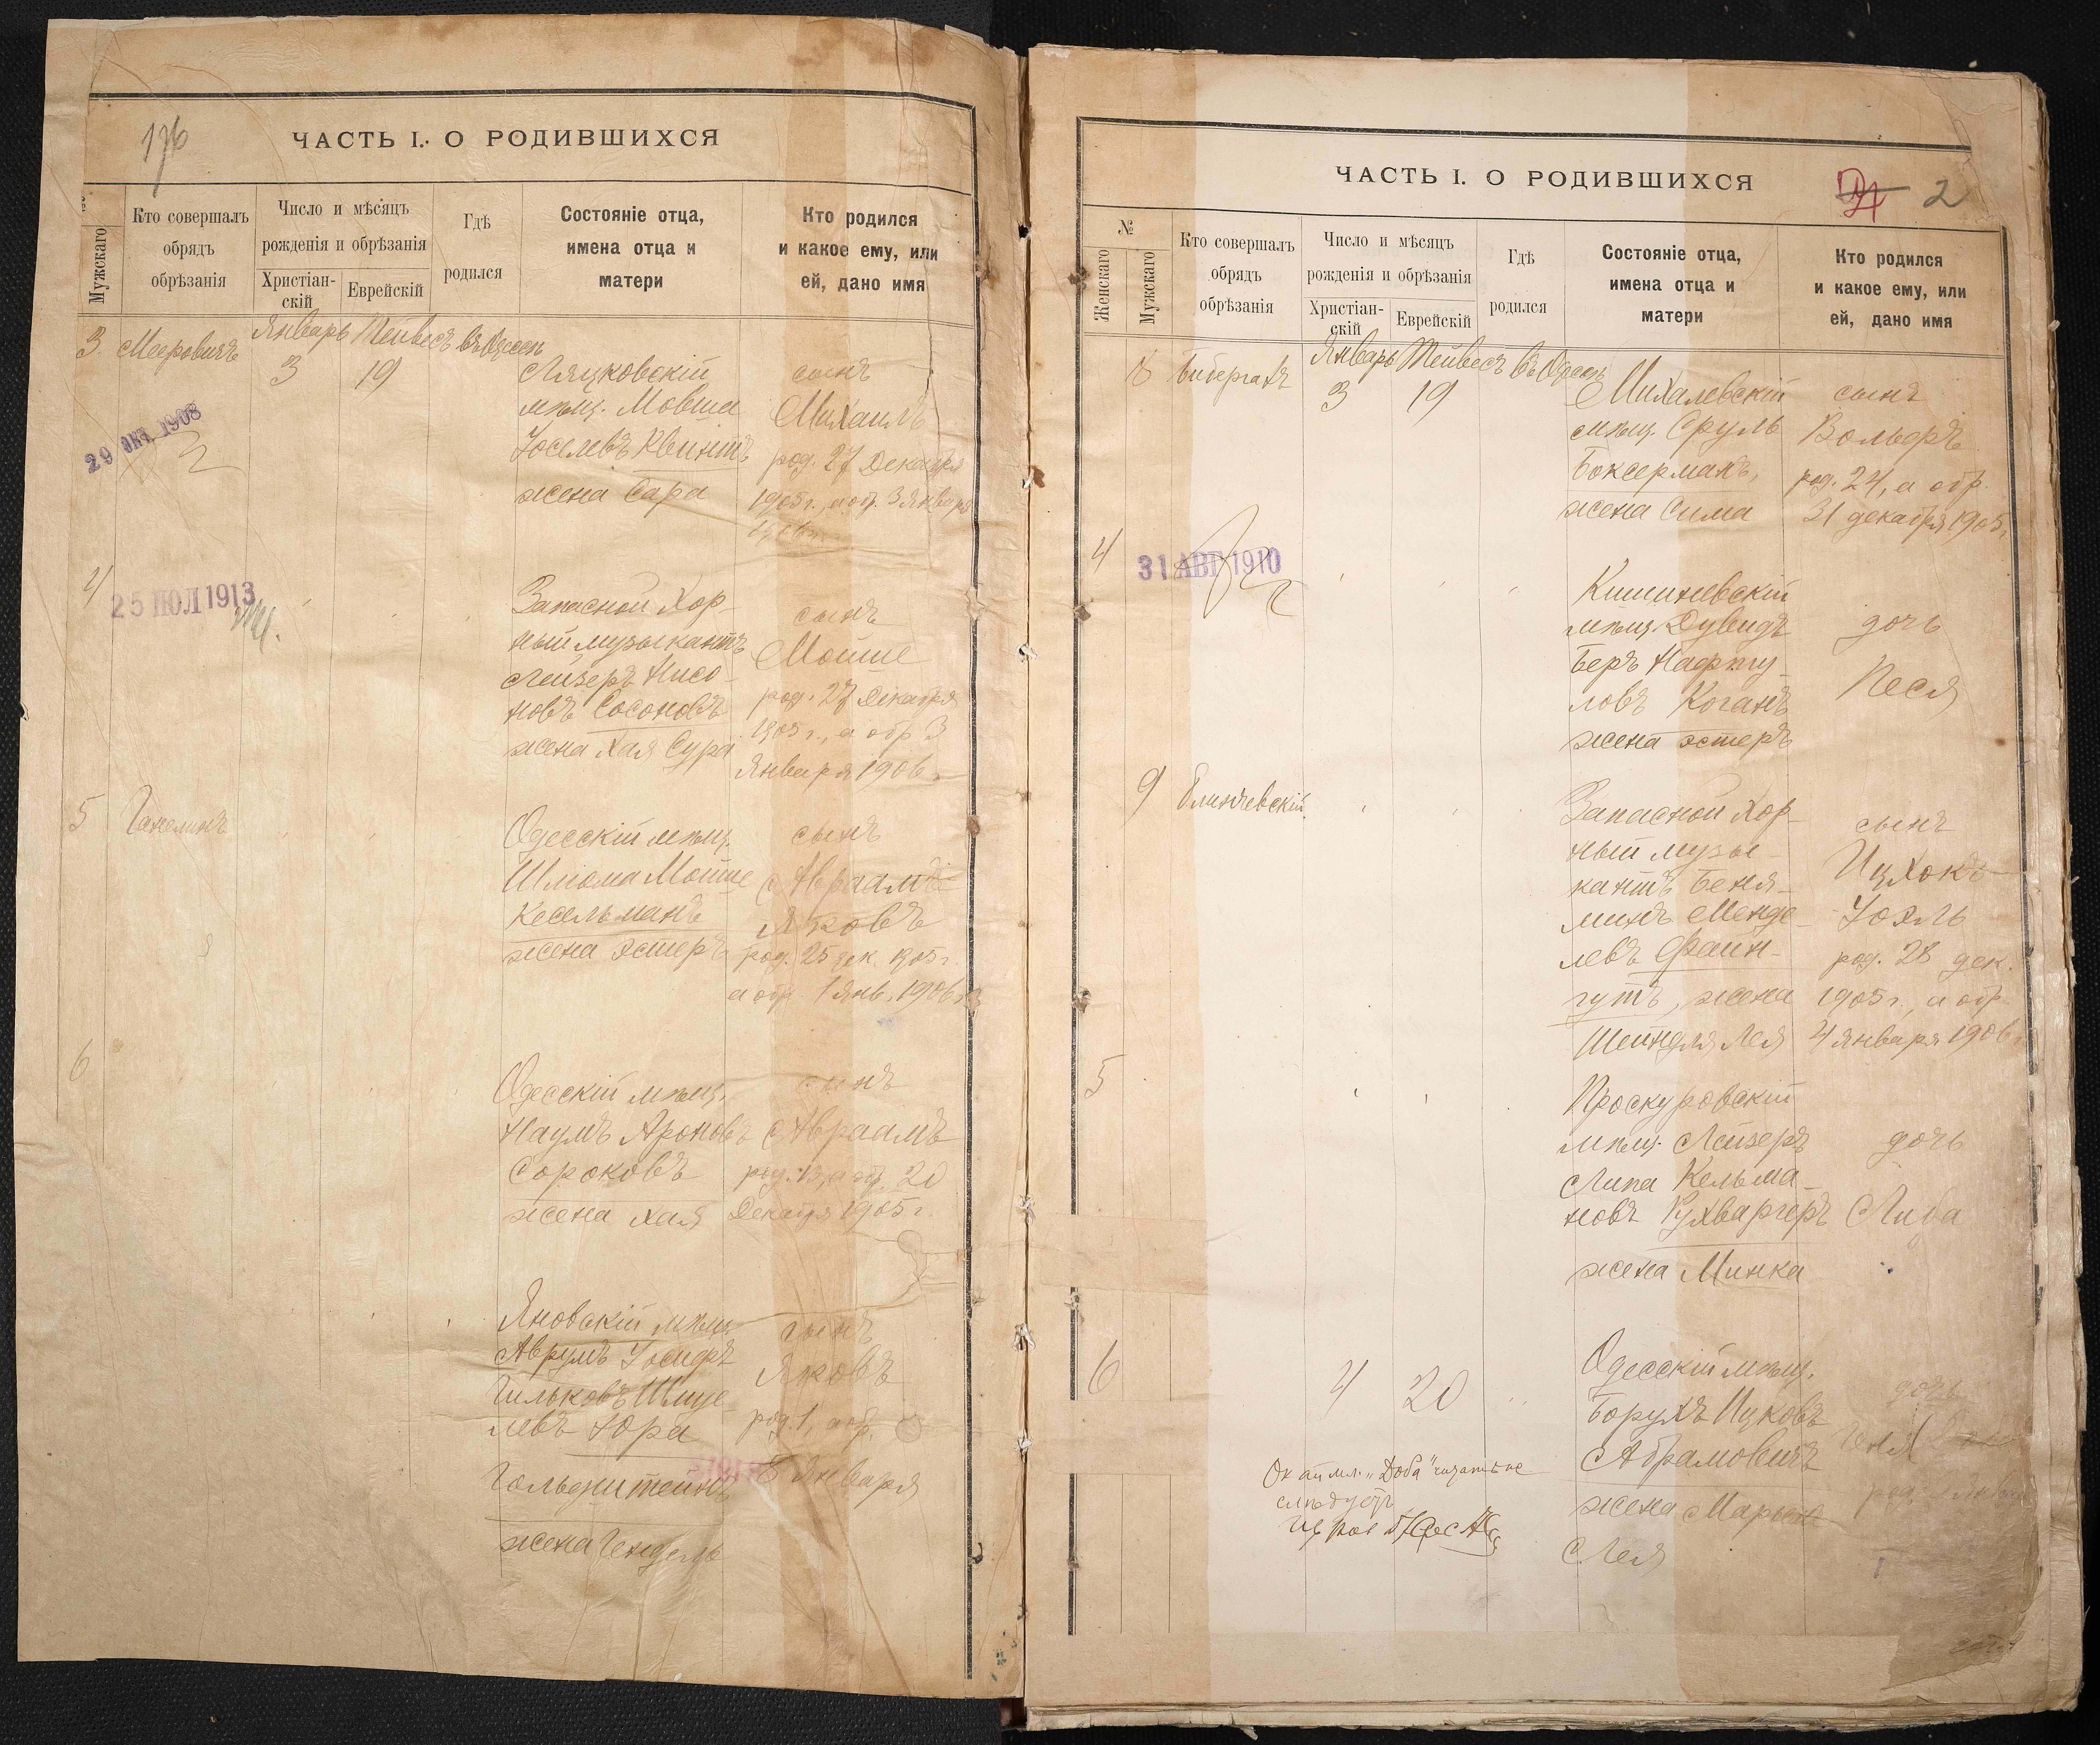 176
ЧАСТЬ I. О РОДИВШИХСЯ
Мужскаго
Кто совершалъ обрядъ обрѣзанія
Число и мѣсяцъ рожденія и обрѣзанія
Христіан-скій
Еврейскій
Гдѣ родился
Состояніе отца, имена отца и матери
Кто родился и какое ему, или ей, дано имя
3 Мееровичъ Январь Тейвесъ въ Одессѣ
3 19
Ляцковскій
мѣщ. Мовша
Іоселевъ Квинтъ
жена Сара
сынъ
Михаилъ
род. 27 Декабря
1905 г., а обр. 3 Января
1906 г.
29 ОКТ 1908
4
25 ІЮЛ 1913
Запасной Хор-
ный музыкантъ
Лейзеръ Нисо-
новъ Сосоновъ
жена Хая Сура
сынъ
Мойше
род. 27 Декабря
1905 г., а обр 3
Января 1906 г.
5 Ганелинъ
Одесскій мѣщ.
Шліома Мойше
Кесельманъ
жена Эстеръ
сынъ
Авраамъ
Яковъ
род. 25 дек. 1905 г.
а обр. 1 Янв. 1906 г.
6
Одесскій мѣщ.
Наумъ Ароновъ
Сороковъ
жена Хая
сынъ
Авраамъ
род. 13, а обр. 20
Декабря 1905 г.
Яновскій мѣщ.
Аврумъ Іосифъ
Гильковъ Шмуе-
левъ Юра
Гольдштейнъ
жена Гендель
сынъ
Яковъ
род. 1, а обр.
8 Января
ЧАСТЬ I. О РОДИВШИХСЯ
2
№
Женскаго
Мужскаго
Кто совершалъ обрядъ обрѣзанія
Число и мѣсяцъ рожденія и обрѣзанія
Христіан-скій
Еврейскій
Гдѣ родился
Состояніе отца, имена отца и матери
Кто родился и какое ему, или ей, дано имя
8 Бибергалъ Январь Тейвесъ въ Одессѣ
3 19
Михалевскій
мѣщ. Сруль
Боксерманъ,
жена Сима
сынъ
Вольфъ
род. 24, а обр.
31 декабря 1905 г.
4
31 АВГ 1910
Кишиневскій
мѣщ. Дувидъ
Беръ Нафту-
ловъ Коганъ
жена Эстеръ
дочь
Песя
9 Блинчевскій
Запасной Хор-
ный музы-
кантъ Беня-
минъ Менде-
левъ Файн-
гутъ, жена
Шейндля Лея
сынъ
Ицхокъ
Іоэль
род. 28 дек.
1905 г., а обр.
4 Января 1906 г.
5
Проскуровскій
мѣщ. Лейзеръ
Липа Кельма-
новъ Кухваргеръ
жена Минка
дочь
Либа
6
4 20
Одесскій мѣщ.
Борухъ Ицковъ
Абрамовичъ
жена Марьям
Лея
дочь
Геня
род.
"Доба" читать не
слѣдуетъ